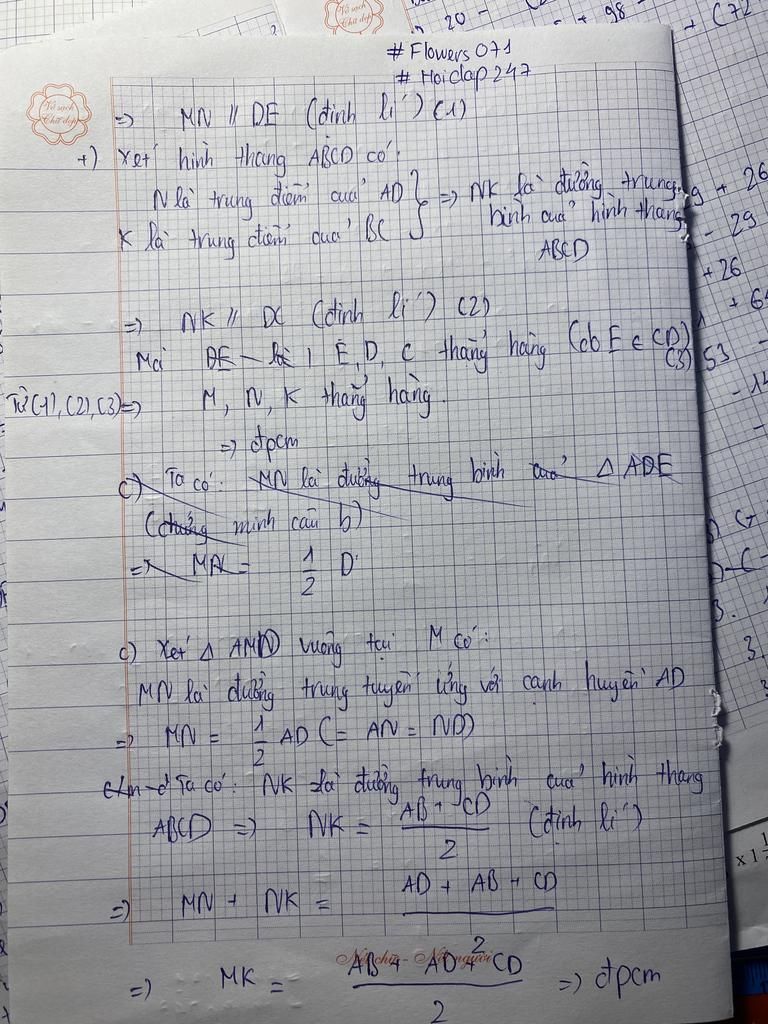 # Flowers 071
# Hoidap 247
Vở sạch
Chữ đẹp
=> MN // DE (định lí) (1)
+) Xét hình thang ABCD có:
N là trung điểm của AD } => NK là đường trung
K là trung điểm của BC } bình của hình thang
ABCD
=> NK // DC (định lí) (2)
Mà DE E, D, C thẳng hàng (do E ∈ CD) (3)
Từ (1), (2), (3) => M, N, K thẳng hàng.
=> đpcm
c) Ta có: MN là đường trung bình của Δ ADE
(chứng minh câu b)
=> MN = 1/2 D
c) Xét Δ AMD vuông tại M có:
MN là đường trung tuyến ứng với cạnh huyền AD
=> MN = 1/2 AD (= AN = ND)
Ta có: NK là đường trung bình của hình thang
ABCD => NK = (AB + CD)/2 (định lí)
=> MN + NK = (AD + AB + CD)/2
Nét chữ - Nết người
=> MK = (AB + AD + CD)/2 => đpcm
20 -
+ 98 -
+ (72
9 + 26
- 29
+ 26
+ 64
53 -
- 14
3.
3.
x 1